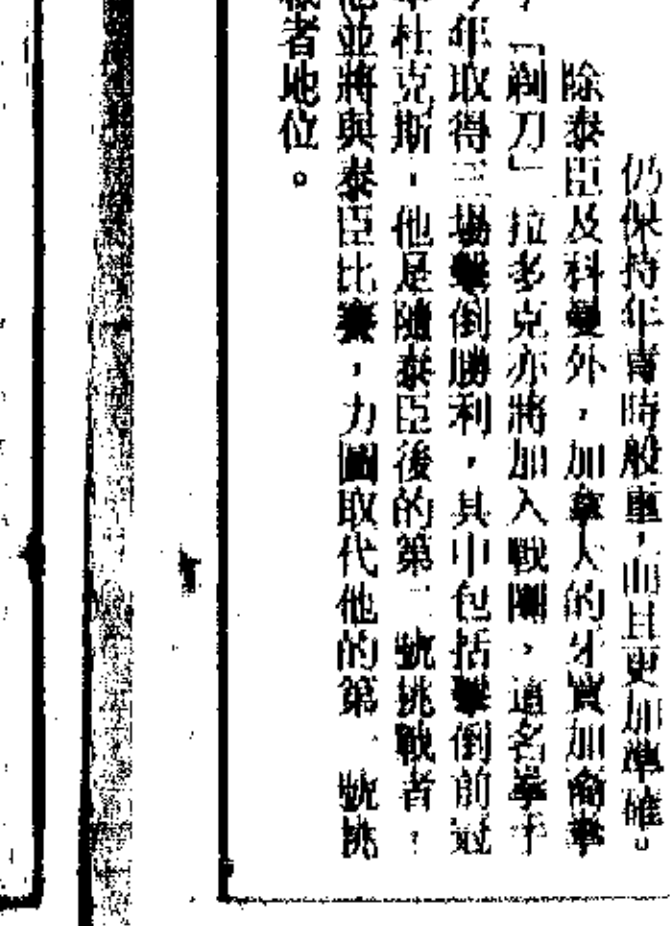 仍保持年青時般重，而且更加準確。
除泰臣及科曼外，加拿大的牙買加裔拳
手「剃刀」拉多克亦將加入戰團，這名拳手
今年取得三場擊倒勝利，其中包括擊倒前冠
軍杜克斯，他是隨泰臣後的第二號挑戰者，
他並將與泰臣比賽，力圖取代他的第一號挑
戰者地位。